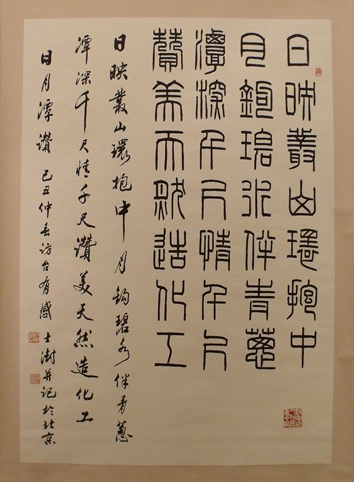 日映叢山環抱中
月鉤碧水伴青蔥
潭深千尺情千尺
贊美天然造化工
日映叢山環抱中月鉤碧水伴青蔥
潭深千尺情千尺讚美天然造化工
日月潭讚 己丑仲春訪台有感 士澍并記於北京